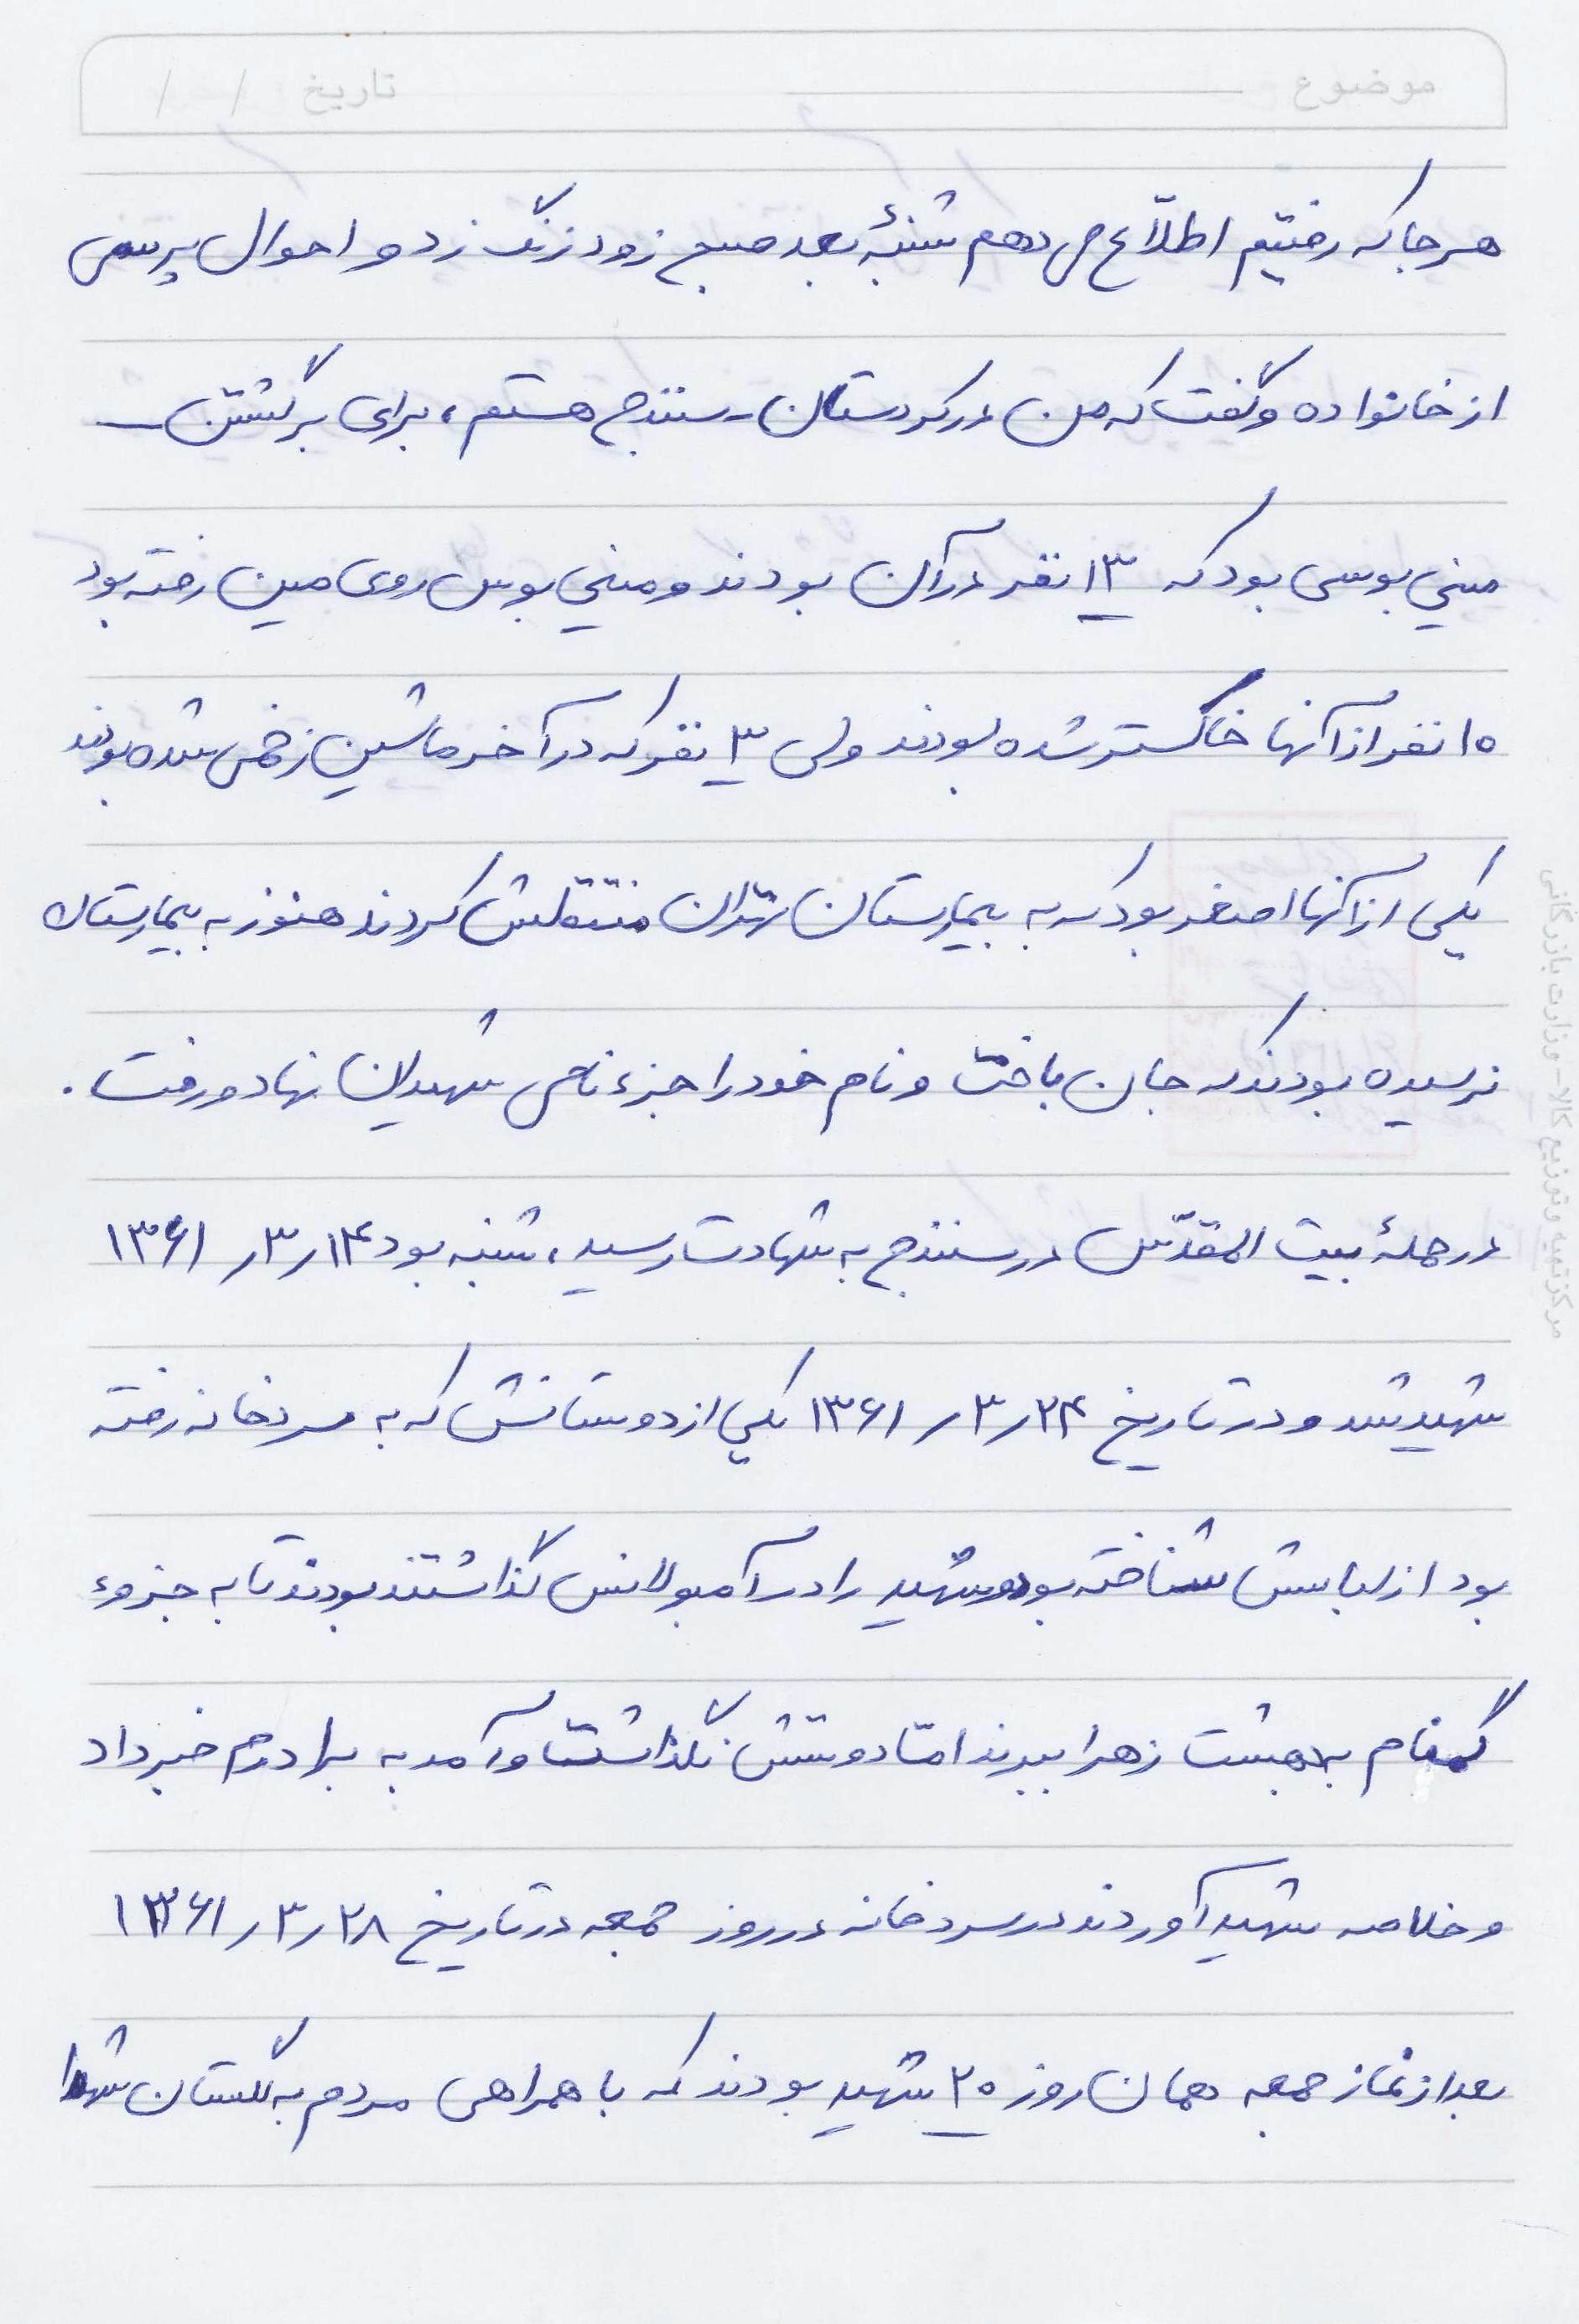 موضوع تاریخ / /
هر جا که رفتیم اطلّاع می دهم شنبهٔ بعد صبح زود زنگ زد و احوال پرسی
از خانواده و گفت که من در کردستان - سنندج هستم، برای برگشتن
مینی بوسی بود که ۱۳ نفر در آن بودند و مینی بوس روی مین رفته بود
۱۰ نفر از آنها خاکستر شده بودند ولی ۳ نفر که در آخر ماشین زخمی شده بودند
یکی از آنها اصغر بود که به بیمارستان تهران منتقلش کردند هنوز به بیمارستان
نرسیده بودند که جان باخت و نام خود را جزء نامی شهیدان نهاد و رفت .
در حملهٔ بیت المقدّس در سنندج به شهادت رسید، شنبه بود ۱۴ر۳ر ۱۳۶۱
شهید شد و در تاریخ ۲۴ر۳ر ۱۳۶۱ یکی از دوستانش که به سردخانه رفته
بود از لباسش شناخته بود و شهید را در آمبولانس گذاشتند بودند تا به جزوء
گمنام به بهشت زهرا ببرند امّا دوستش نگذاشت و آمد به برادرم خبر داد
و خلاصه شهید آوردند در سردخانه در روز جمعه در تاریخ ۲۸ر۳ر ۱۳۶۱
بعد از نماز جمعه همان روز ۲۰ شهید بودند که با همراهی مردم به گلستان شهدا
مرکز تهیه و توزیع کالا - وزارت بازرگانی